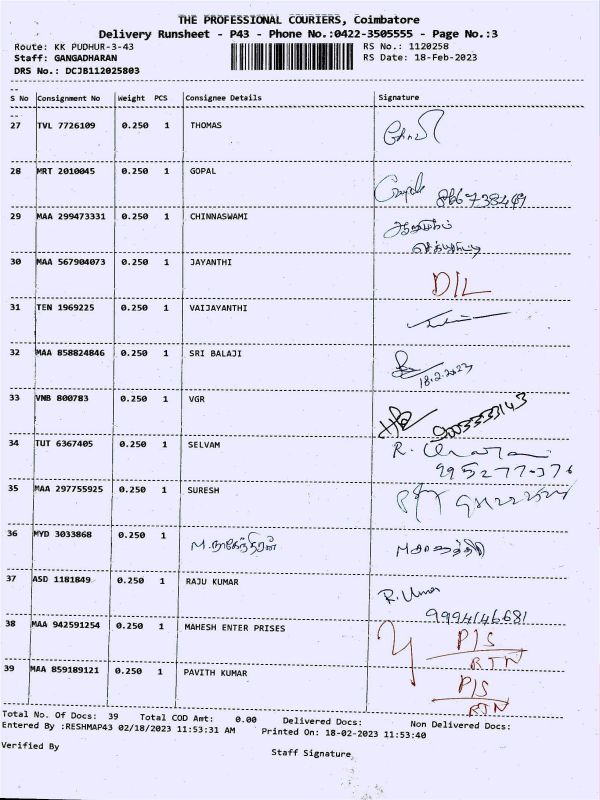 THE PROFESSIONAL COURIERS, Coimbatore
Delivery Runsheet - P43 - Phone No.:0422-3505555 - Page No.:3
Route: KK PUDHUR-3-43 RS No.: 1120258
Staff: GANGADHARAN RS Date: 18-Feb-2023
DRS No.: DCJB112025803
S No Consignment No Weight PCS Consignee Details Signature
27 TVL 7726109 0.250 1 THOMAS
28 MRT 2010045 0.250 1 GOPAL
29 MAA 299473331 0.250 1 CHINNASWAMI
30 MAA 567904073 0.250 1 JAYANTHI
D/L
31 TEN 1969225 0.250 1 VAIJAYANTHI
32 MAA 858824846 0.250 1 SRI BALAJI
18.2.2023
33 VNB 800783 0.250 1 VGR
34 TUT 6367405 0.250 1 SELVAM R.
35 MAA 297755925 0.250 1 SURESH
36 MYD 3033868 0.250 1 M.நாகேந்திரன்
37 ASD 1181849 0.250 1 RAJU KUMAR R. Uma
9994146681
38 MAA 942591254 0.250 1 MAHESH ENTER PRISES P/S
RTN
39 MAA 859189121 0.250 1 PAVITH KUMAR P/S
RTN
Total No. Of Docs: 39 Total COD Amt: 0.00 Delivered Docs: Non Delivered Docs:
Entered By :RESHMAP43 02/18/2023 11:53:31 AM Printed On: 18-02-2023 11:53:40
Verified By Staff Signature